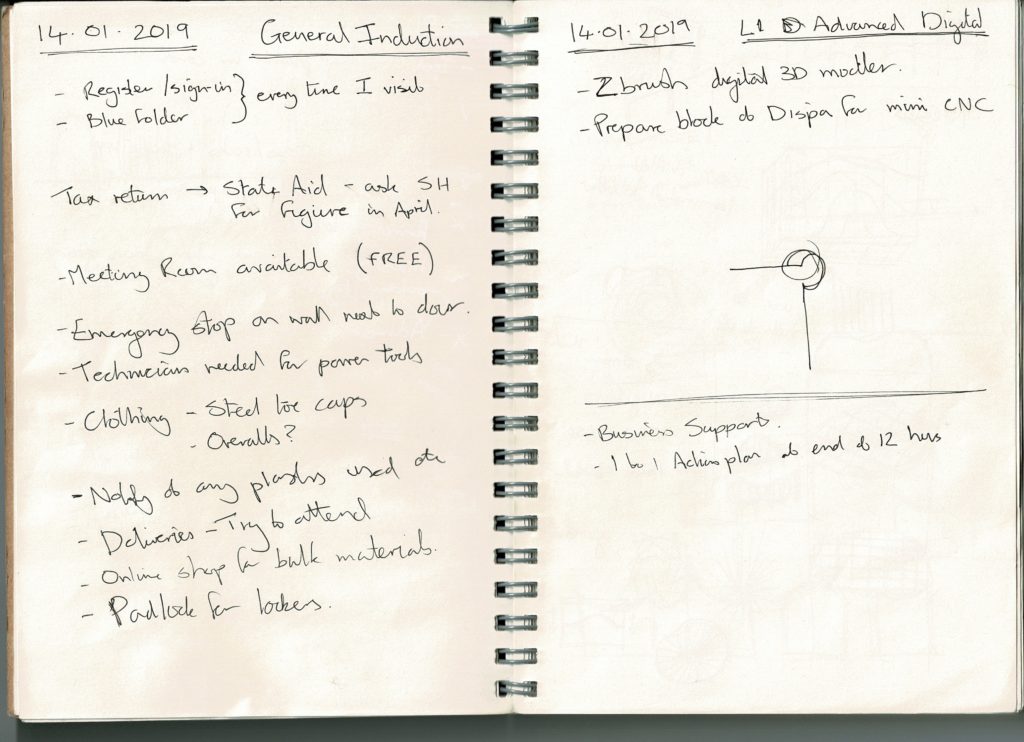 14.01.2019
General Induction
- Register/sign in } every time I visit
- Blue folder
Tax return → State Aid - ask SH
for figure in April.
- Meeting Room available (FREE)
- Emergency stop on wall next to door.
- Technician needed for power tools
- Clothing - Steel toe caps
- Overalls?
- Notify of any plastics used etc
- Deliveries - Try to attend
- Online shop for bulk materials.
- Padlock for lockers.
14.01.2019
L1 Advanced Digital
- Zbrush digital 3D modler.
- Prepare block of Dispa for mini CNC
- Business Support.
- 1 to 1 Action plan at end of 12 hours